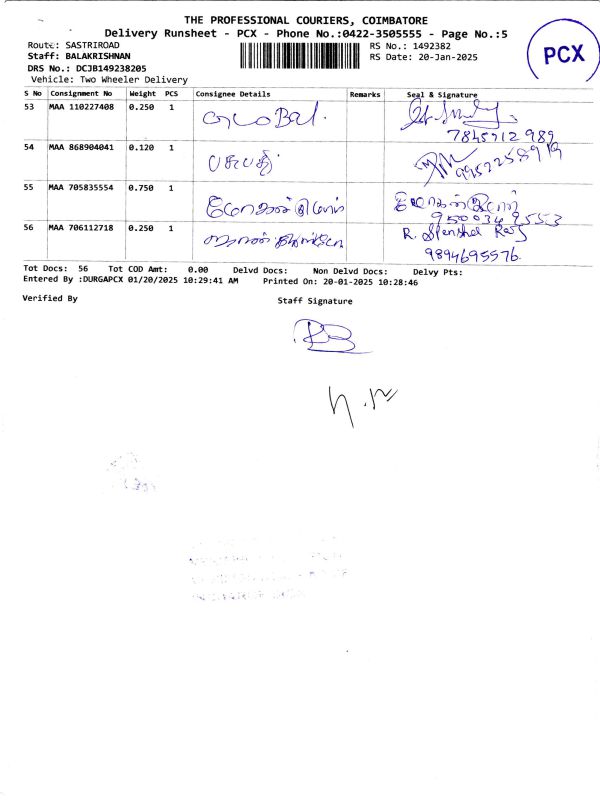 THE PROFESSIONAL COURIERS, COIMBATORE
Delivery Runsheet - PCX - Phone No.:0422-3505555 - Page No.:5
Route: SASTRIROAD
RS No.: 1492382
Staff: BALAKRISHNAN
RS Date: 20-Jan-2025
DRS No.: DCJB149238205
Vehicle: Two Wheeler Delivery
PCX
S No Consignment No Weight PCS Consignee Details Remarks Seal & Signature
53 MAA 110227408 0.250 1
7845912989
54 MAA 868904041 0.120 1 பசுபதி
55 MAA 705835554 0.750 1
9500349553
56 MAA 706112718 0.250 1
9894695576.
Tot Docs: 56 Tot COD Amt: 0.00 Delvd Docs: Non Delvd Docs: Delvy Pts:
Entered By :DURGAPCX 01/20/2025 10:29:41 AM Printed On: 20-01-2025 10:28:46
Verified By Staff Signature